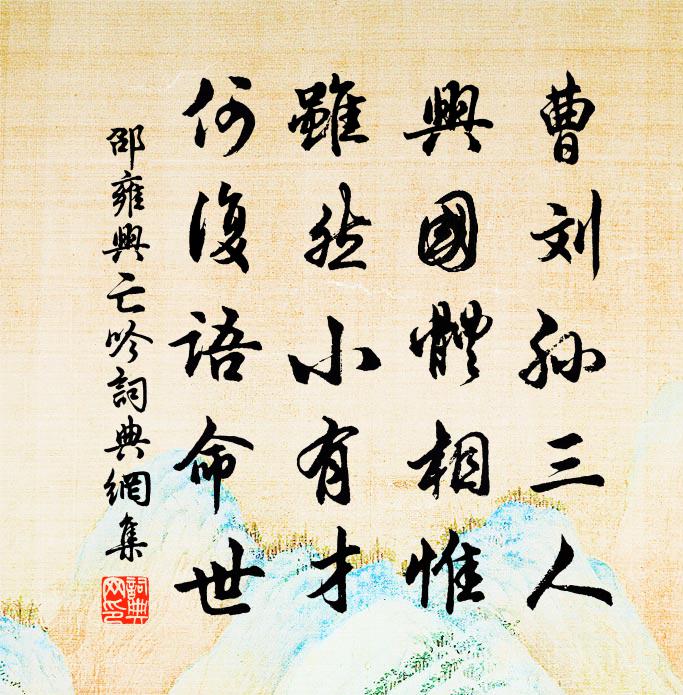 曹刘孙三人
興國體相惟
雖然小有才
何復語命世
邵雍興亡吟詞典網集
詞典網印